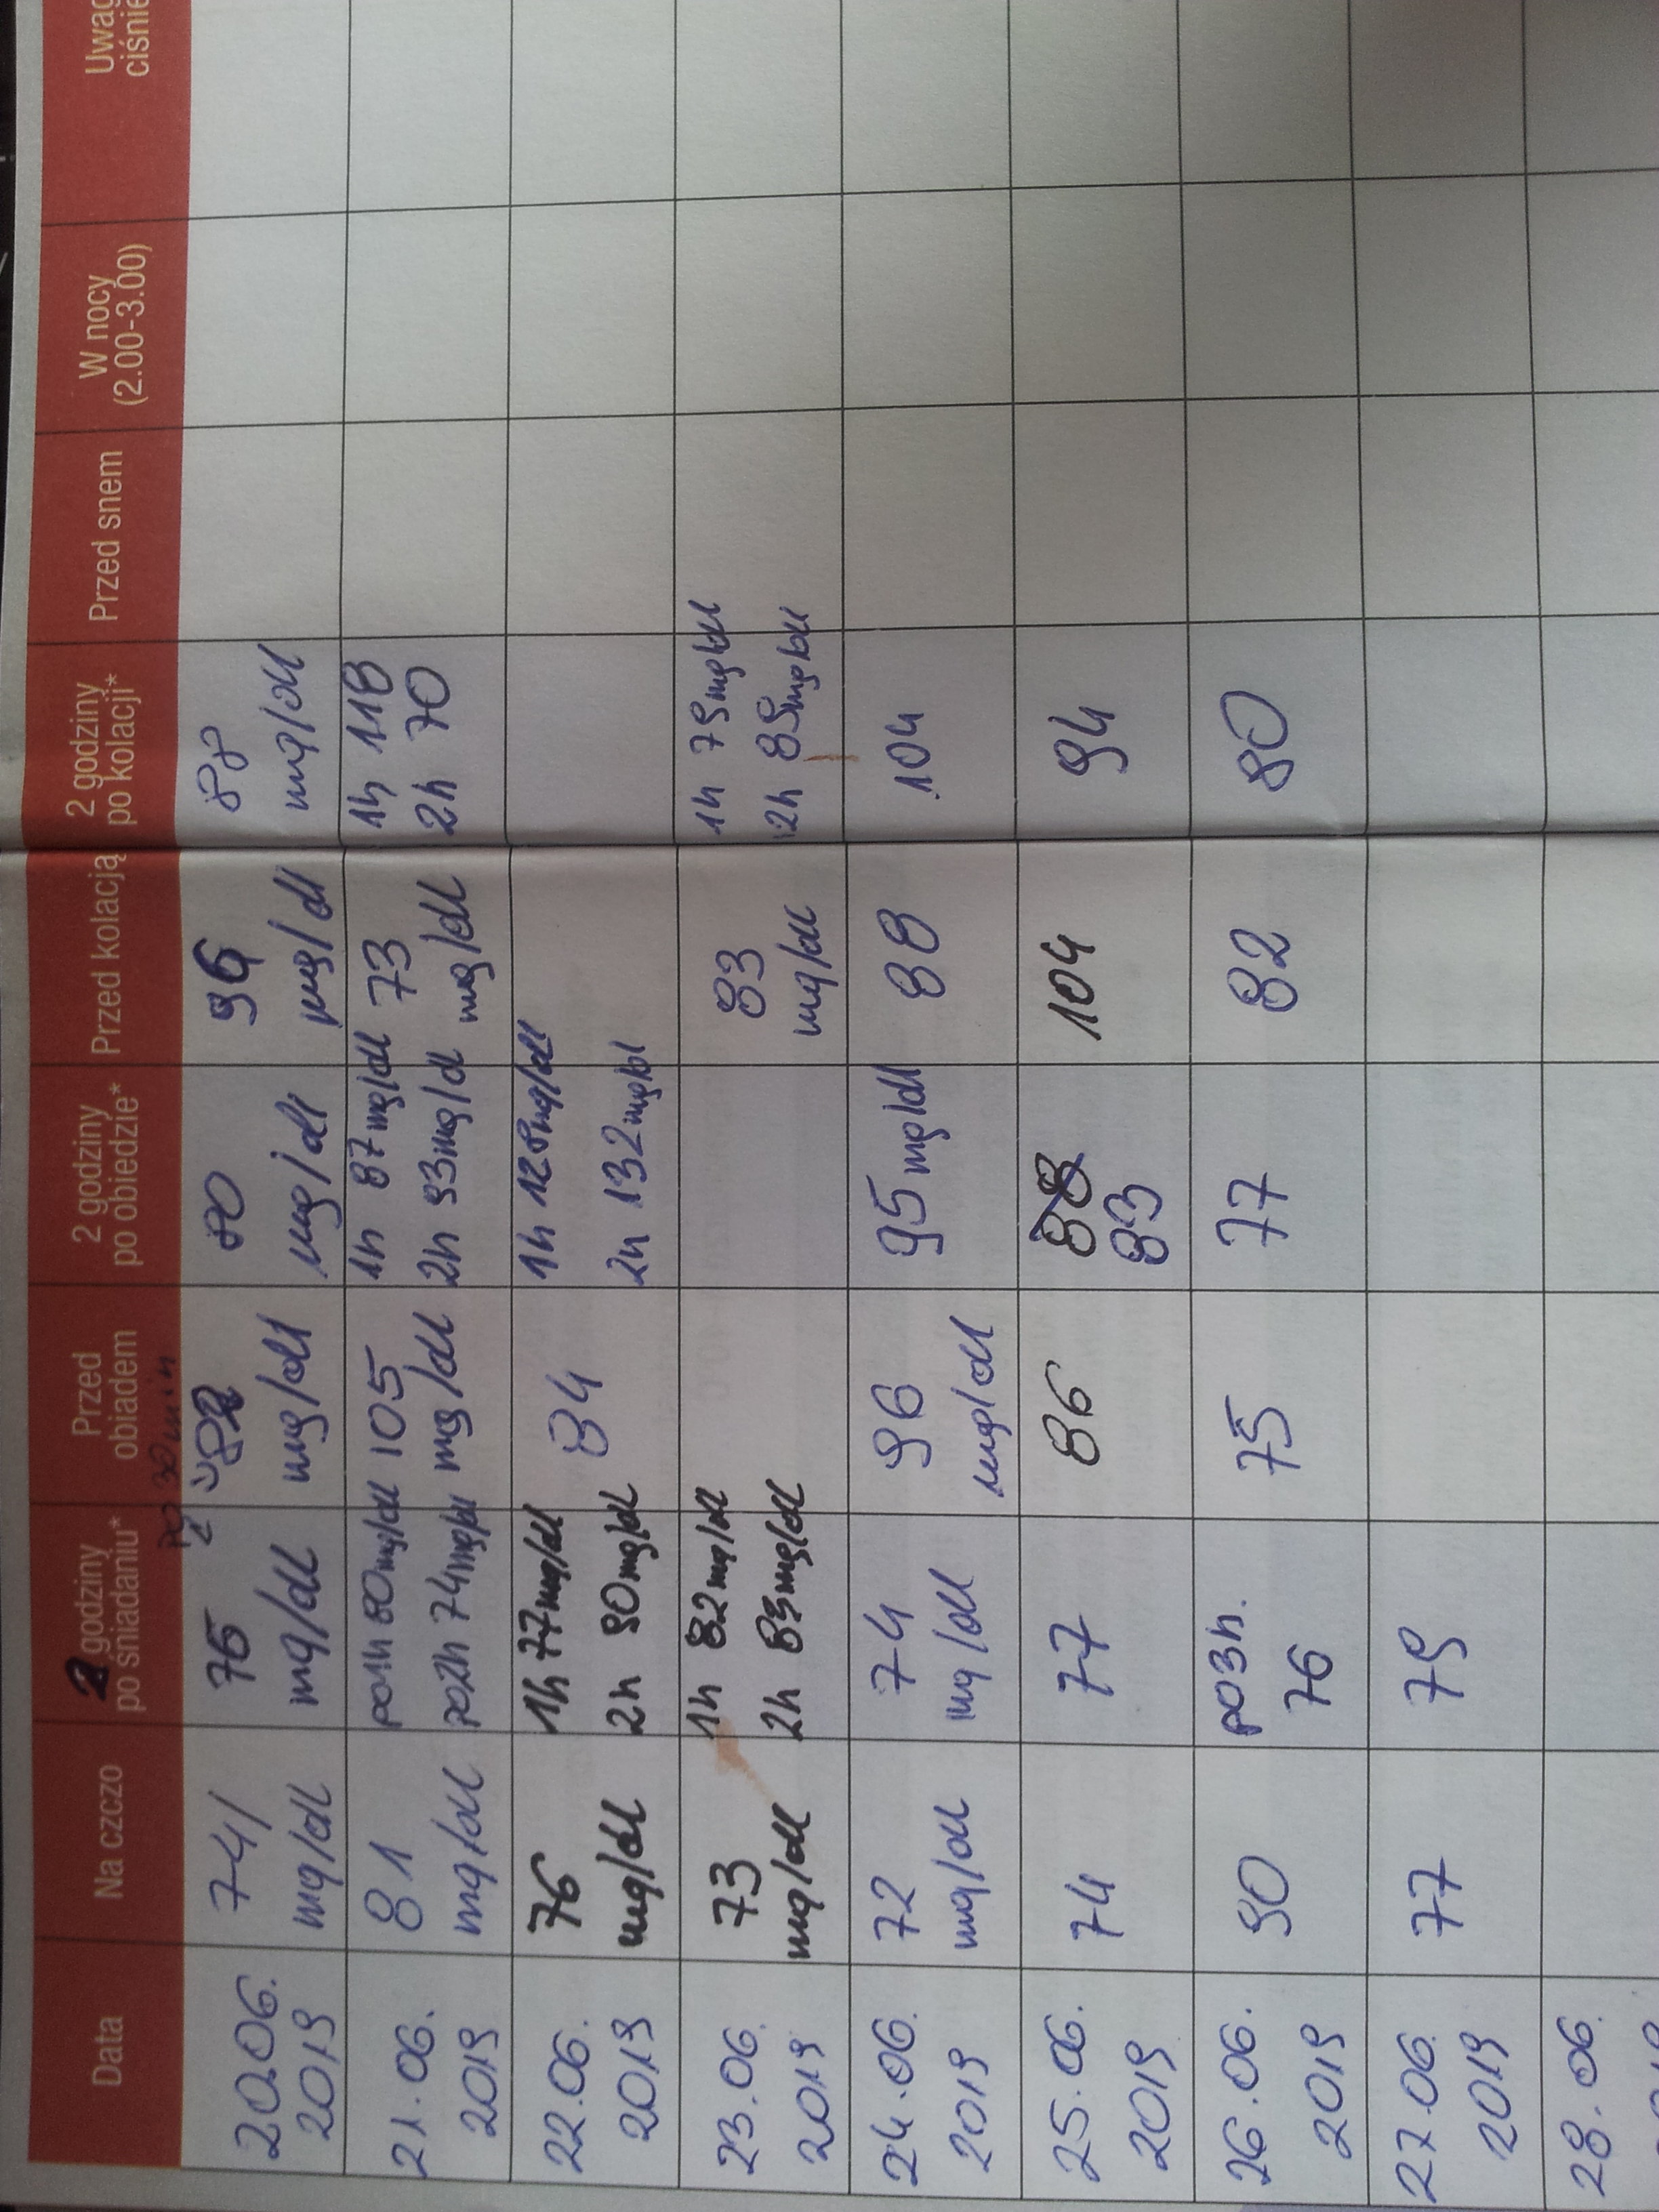 Data
Na czczo
2 godziny
po śniadaniu*
po
30min
Przed
obiadem
2 godziny
po obiedzie*
Przed kolacją
2 godziny
po kolacji*
Przed snem
W nocy
(2.00-3.00)
Uwag
ciśnie
20.06.
2019
74/
mg/dl
75
mg/dl
82
mg/dl
80
mg/dl
96
mg/dl
88
mg/dl
21.06.
2019
81
mg/dl
po 1h 80mg/dl
po 2h 74mg/dl
105
mg/dl
1h 87mg/dl
2h 93mg/dl
73
mg/dl
1h 118
2h 70
22.06.
2019
76
mg/dl
1h 77mg/dl
2h 90mg/dl
84
1h 128mg/dl
2h 132mg/dl
23.06.
2019
73
mg/dl
1h 82mg/dl
2h 83mg/dl
83
mg/dl
1h 79mg/dl
2h 89mg/dl
24.06.
2019
72
mg/dl
74
mg/dl
96
mg/dl
95mg/dl
88
104
25.06.
2019
74
77
86
88
83
104
94
26.06.
2019
90
po 3h.
76
75
77
82
80
27.06.
2019
77
79
28.06.